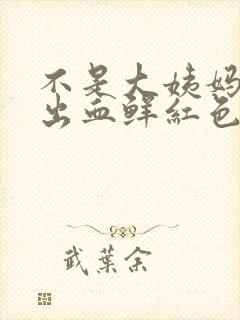 不是大姨妈
出血鲜红色
武葉余